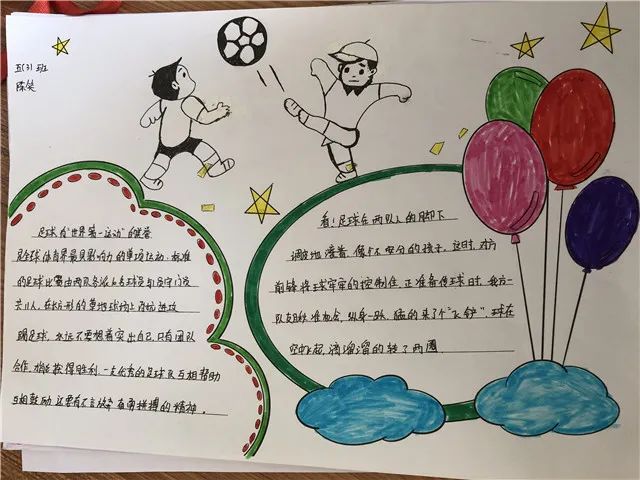 五(3)班
陈笑
足球有"世界第一运动"的美誉
是全球体育界最具影响力的单项运动.标准
的足球比赛由两队各派10名球员与1名守门员
共11人,在长方形的草地球场上对抗进攻
踢足球,永远不要想着突出自己,只有团队
合作,才能获得胜利.一支优秀的足球队互相帮助
互相鼓励.还要有不言放弃奋勇拼搏的精神。
看!足球在两队人的脚下
调皮地滚着,像个不安分的孩子,这时,对方
前锋将球牢牢的控制住.正准备传球时.我方一
队友瞅准机会,纵身一跃.猛的来了个"飞铲".球在
空中起,滴溜溜的转了两圈.